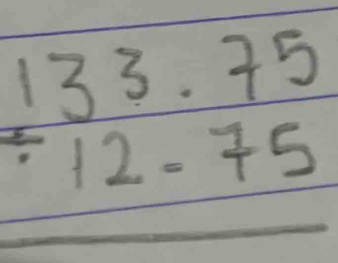 133.75
÷ 12.75